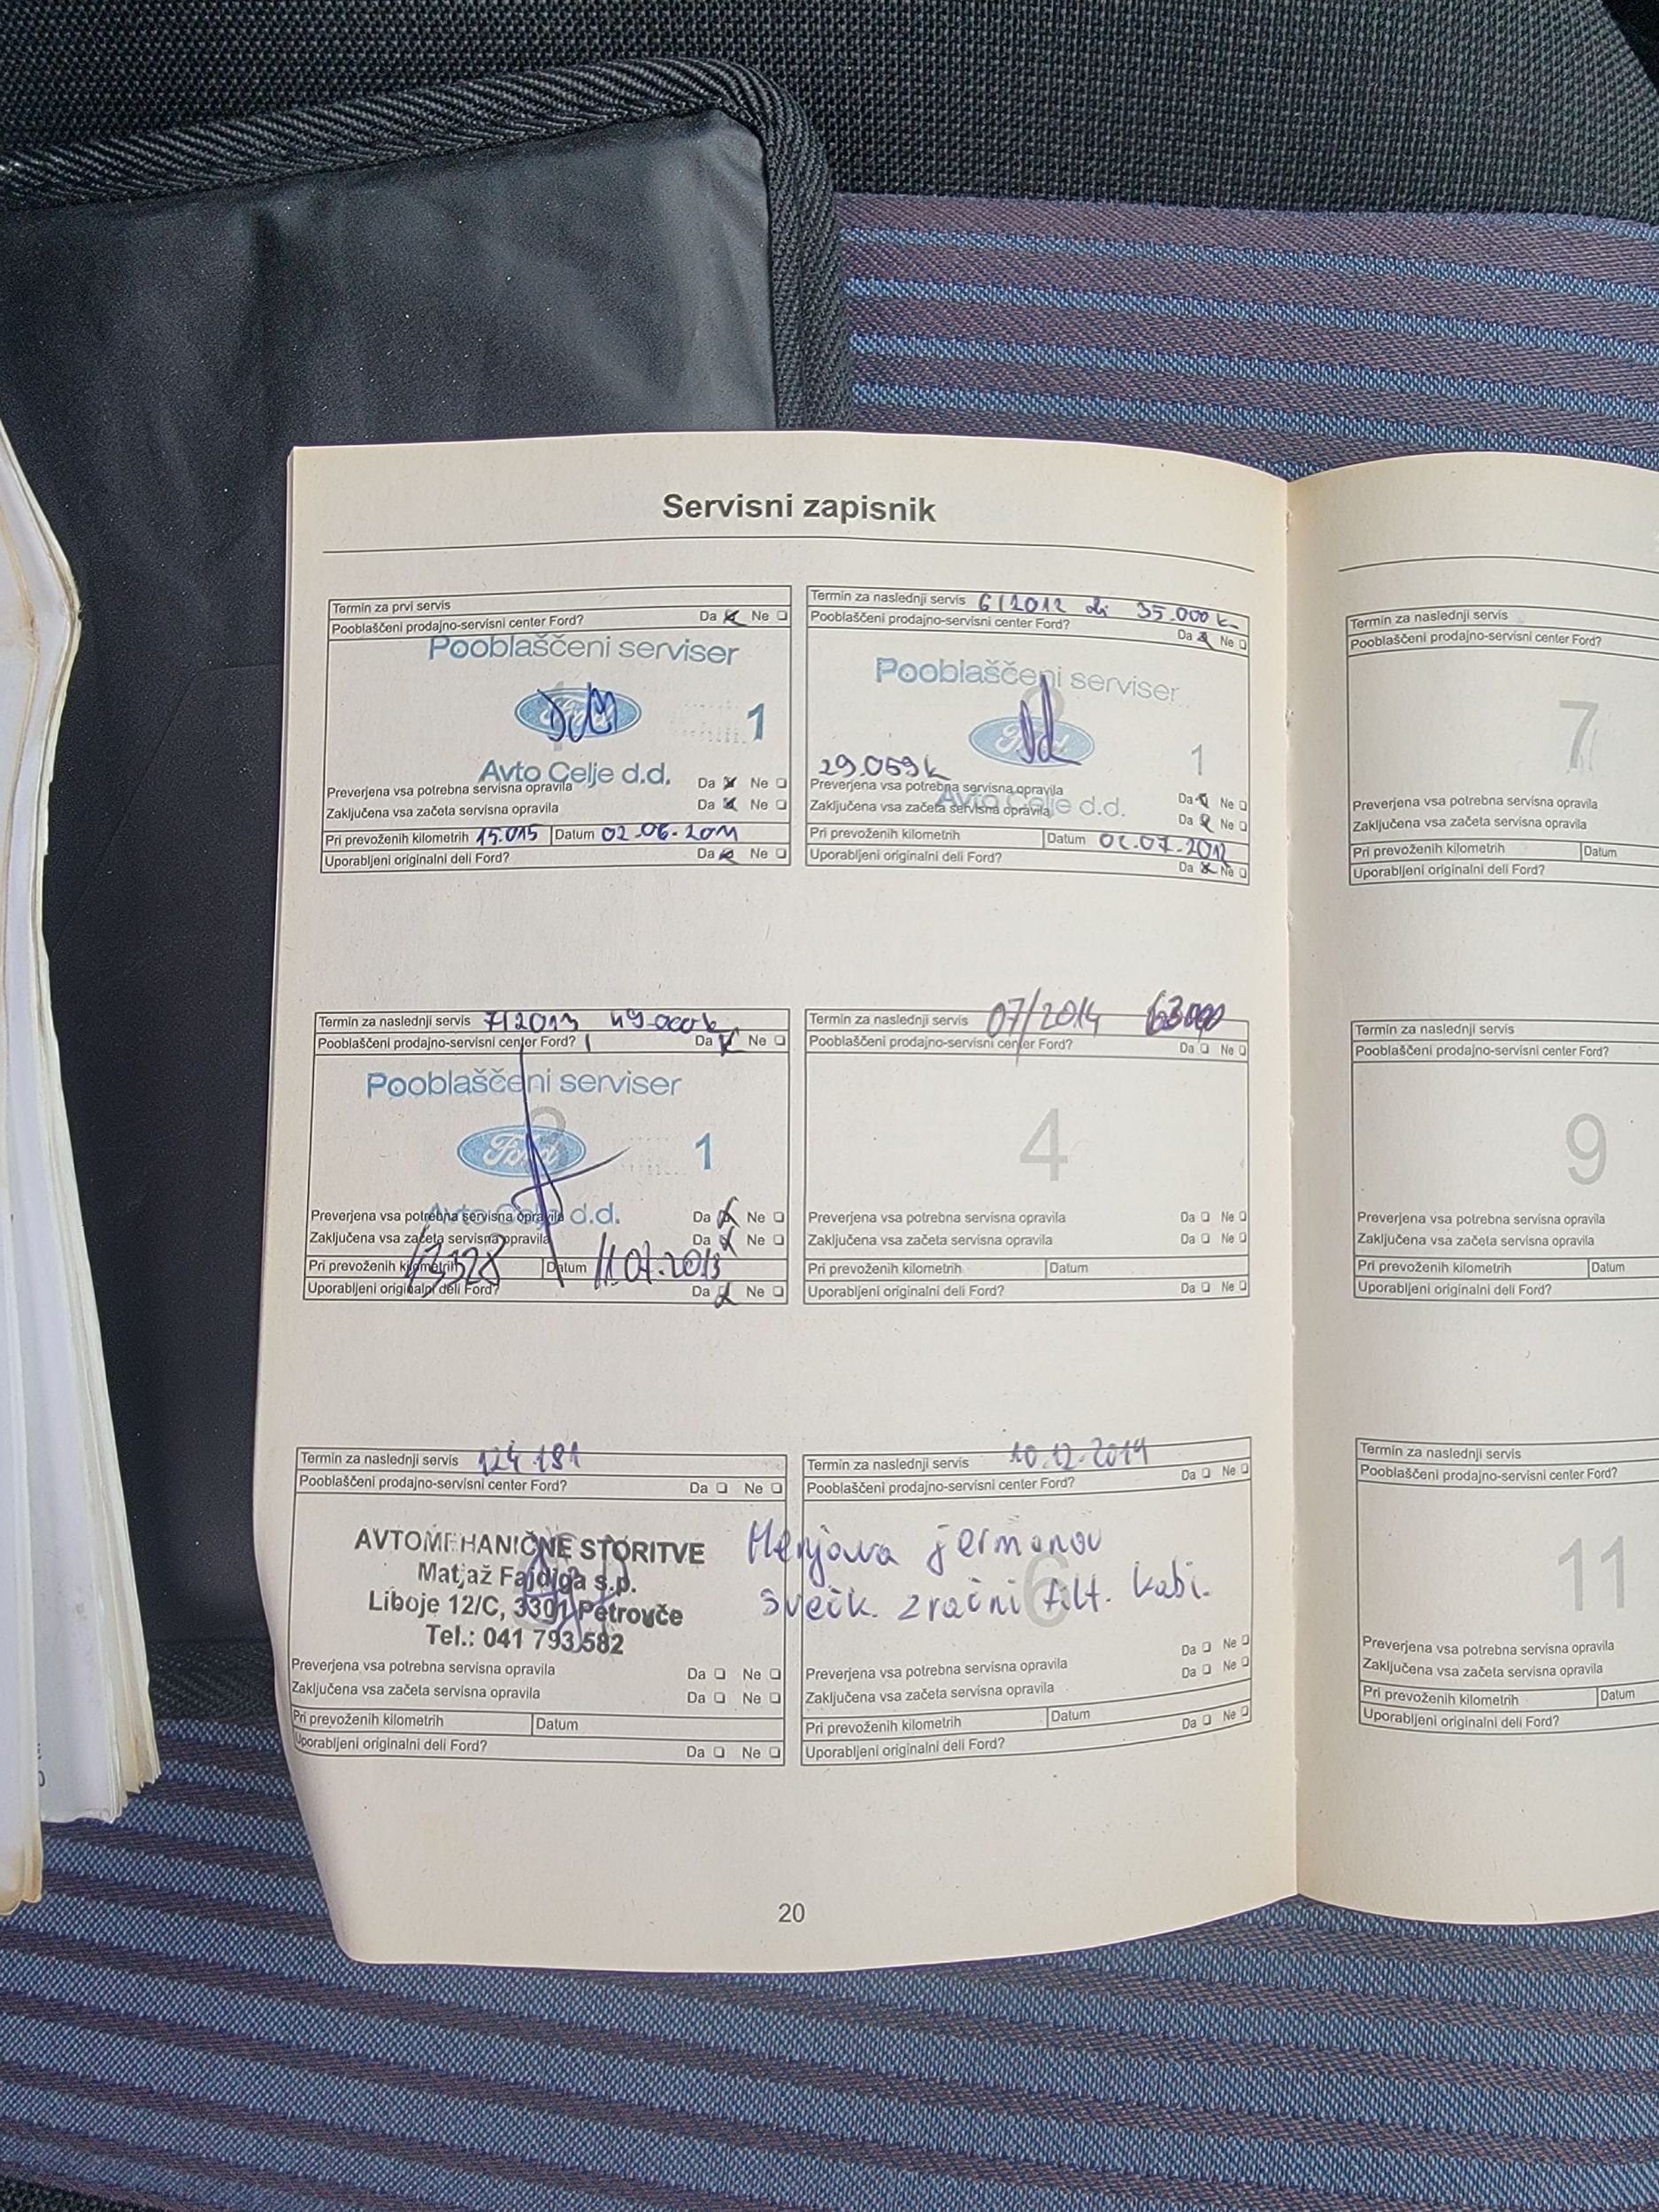 Servisni zapisnik
Termin za prvi servis
Pooblaščeni prodajno-servisni center Ford? Da Ne
Pooblaščeni serviser
Ford
1
Avto Celje d.d.
Preverjena vsa potrebna servisna opravila Da Ne
Zaključena vsa začeta servisna opravila Da Ne
Pri prevoženih kilometrih 15.015 Datum 02.06.2011
Uporabljeni originalni deli Ford? Da Ne
Termin za naslednji servis 6/2012 ali 35.000 k
Pooblaščeni prodajno-servisni center Ford? Da Ne
Pooblaščeni serviser
Ford
1
29.059 k
Avto Celje d.d.
Preverjena vsa potrebna servisna opravila Da Ne
Zaključena vsa začeta servisna opravila Da Ne
Pri prevoženih kilometrih Datum 02.07.2012
Uporabljeni originalni deli Ford? Da Ne
Termin za naslednji servis 7/2013 49.000 k
Pooblaščeni prodajno-servisni center Ford? Da Ne
Pooblaščeni serviser
3
Ford
1
Avto Celje d.d.
Preverjena vsa potrebna servisna opravila Da Ne
Zaključena vsa začeta servisna opravila Da Ne
Pri prevoženih kilometrih Datum 11.07.2013
Uporabljeni originalni deli Ford? Da Ne
Termin za naslednji servis 07/2014 63000
Pooblaščeni prodajno-servisni center Ford? Da Ne
4
Preverjena vsa potrebna servisna opravila Da Ne
Zaključena vsa začeta servisna opravila Da Ne
Pri prevoženih kilometrih Datum
Uporabljeni originalni deli Ford? Da Ne
Termin za naslednji servis 124.181
Pooblaščeni prodajno-servisni center Ford? Da Ne
AVTOMEHANIČNE STORITVE
Matjaž Fajdiga s.p.
Liboje 12/C, 3301 Petrovče
Tel.: 041 793 582
Preverjena vsa potrebna servisna opravila Da Ne
Zaključena vsa začeta servisna opravila Da Ne
Pri prevoženih kilometrih Datum
Uporabljeni originalni deli Ford? Da Ne
Termin za naslednji servis 10.12.2019
Pooblaščeni prodajno-servisni center Ford? Da Ne
Menjava jermenov
svečk. zračni filt. kabi.
6
Preverjena vsa potrebna servisna opravila Da Ne
Zaključena vsa začeta servisna opravila Da Ne
Pri prevoženih kilometrih Datum
Uporabljeni originalni deli Ford? Da Ne
20
Termin za naslednji servis
Pooblaščeni prodajno-servisni center Ford?
7
Preverjena vsa potrebna servisna opravila
Zaključena vsa začeta servisna opravila
Pri prevoženih kilometrih Datum
Uporabljeni originalni deli Ford?
Termin za naslednji servis
Pooblaščeni prodajno-servisni center Ford?
9
Preverjena vsa potrebna servisna opravila
Zaključena vsa začeta servisna opravila
Pri prevoženih kilometrih Datum
Uporabljeni originalni deli Ford?
Termin za naslednji servis
Pooblaščeni prodajno-servisni center Ford?
11
Preverjena vsa potrebna servisna opravila
Zaključena vsa začeta servisna opravila
Pri prevoženih kilometrih Datum
Uporabljeni originalni deli Ford?